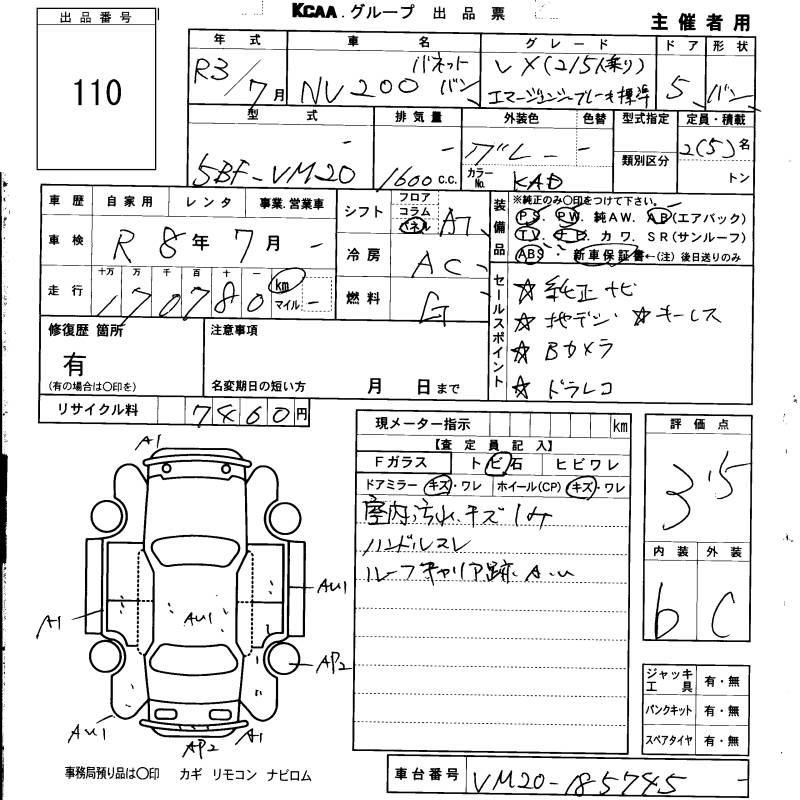 KCAA.グループ 出品票
主催者用
出品番号
110
年式 車名 グレード ドア 形状
R3/7月 NV200 バネット バン VX(2/5人乗り) エマージェンシーブレーキ標準 5 バン
型式 排気量 外装色 色替 型式指定 定員・積載
5BF-VM20 1600 c.c. グレー カラーNo. KAD 類別区分 2(5)名 トン
車歴 自家用 レンタ 事業.営業車
車検 R8年7月
走行 十万 万 千 百 十 一
170780 km マイル
シフト フロア コラム パネル AT
冷房 AC
燃料 G
装備品 ※純正のみ〇印をつけて下さい。
PS. PW. 純AW. AB(エアバック)
TV. ナビ. カワ. SR(サンルーフ)
ABS 新車保証書←(注) 後日送りのみ
セールスポイント
☆ 純正ナビ
☆ 地デジ ☆キーレス
☆ Bカメラ
☆ ドラレコ
修復歴 箇所
有
(有の場合は〇印を)
注意事項
名変期日の短い方 月 日まで
リサイクル料 7460円
現メーター指示 km
【査定員記入】
Fガラス トビ石 ヒビワレ
ドアミラー キズ・ワレ ホイール(CP) キズ・ワレ
室内汚れ、キズ、シミ
ハンドルスレ
ルーフキャリア跡、A、U
評価点
3.5
内装 外装
b C
ジャッキ工具 有・無
パンクキット 有・無
スペアタイヤ 有・無
A1
AU1
AU1
A1
AP2
AU1
AP2
A1
事務局預り品は〇印 カギ リモコン ナビロム
車台番号 VM20-185745